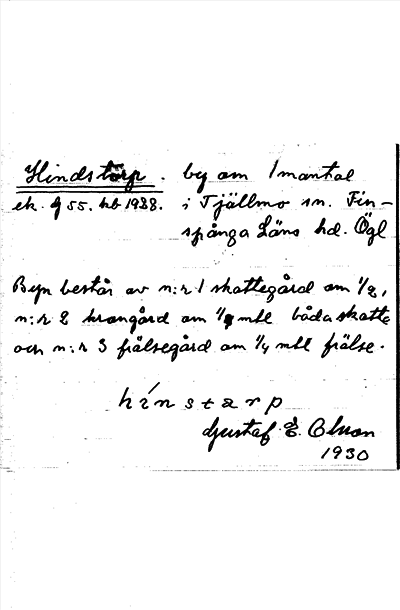 Hindstörp. by om 1 mantal
ek. 9 55. hb 1938. i Tjällmo sn. Fin-
spånga Läns hd. Ögl
Byn består av n:r 1 skattegård om 1/2,
n:r 2 krongård om 1/4 mtl båda skatte
och n:r 3 frälsegård om 1/4 mtl frälse.
hinstarp
Gustaf E. Olson
1930